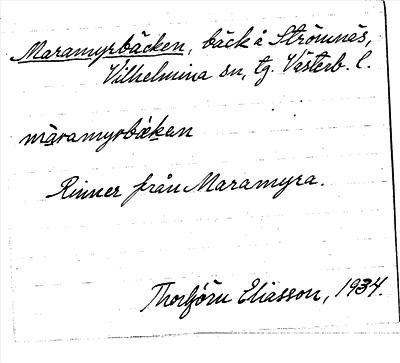 Maramyrbäcken, bäck å Strömnäs,
Vilhelmina sn, tg. Västerb. l.
màramyrbäken
Rinner från Maramyra.
Thorbjörn Eliasson, 1934.